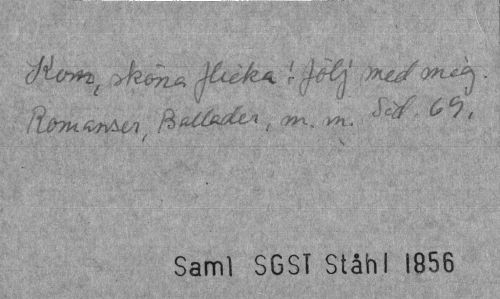 Kom, sköna flicka! följ med mig.
Romanser, Ballader, m. m. Sid. 69.
Saml SGST Ståhl 1856